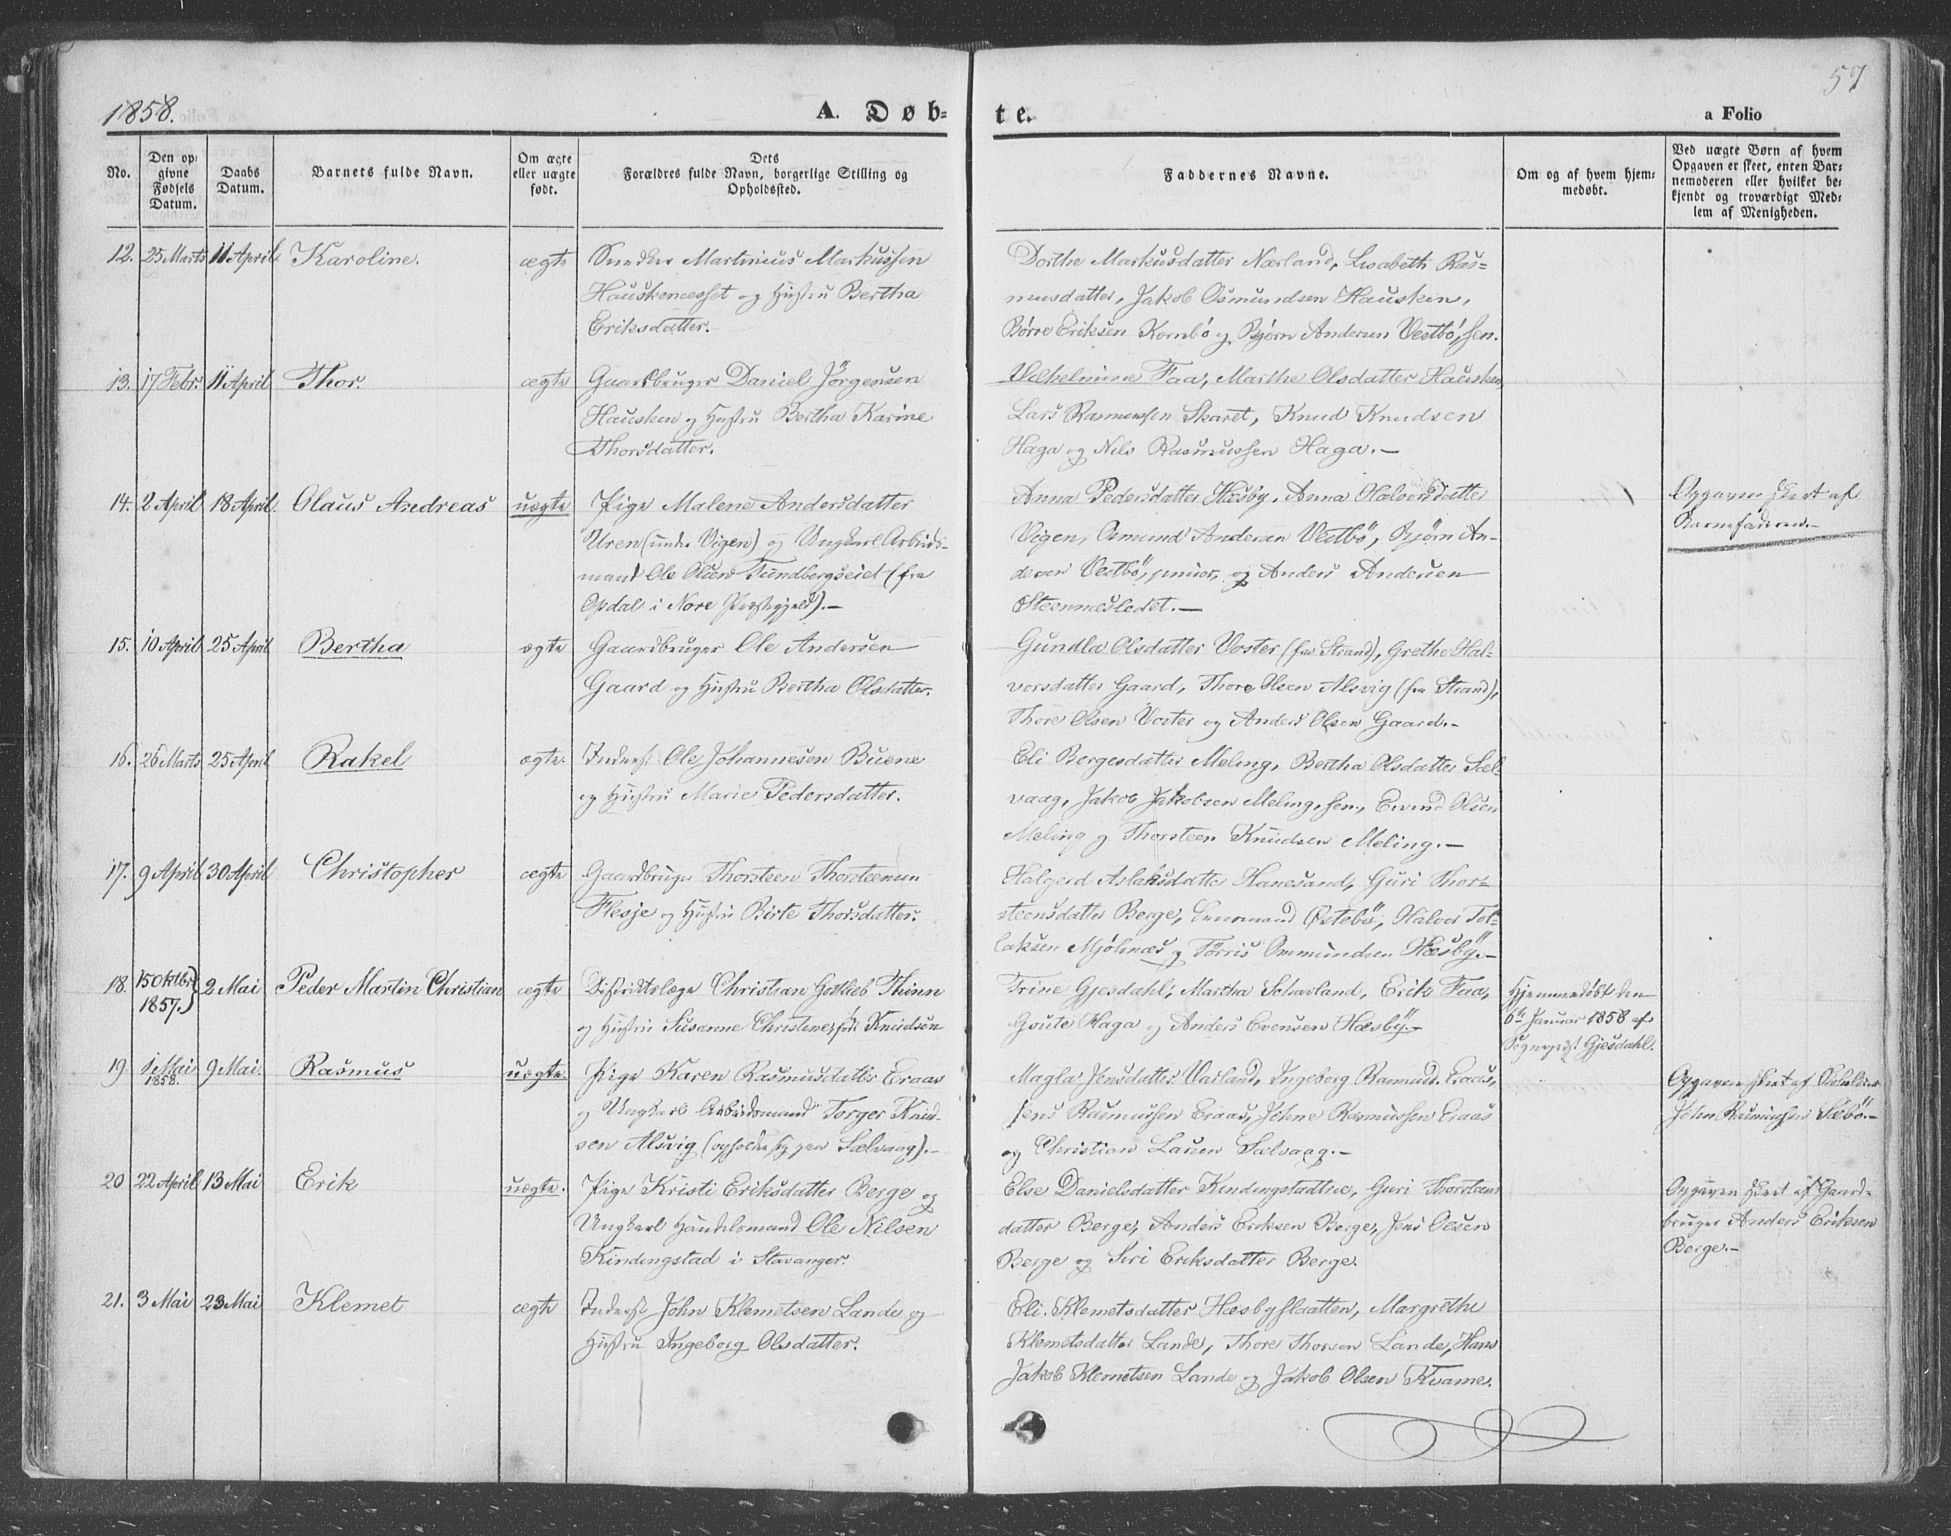 57
1858.
A. Døb-
te.
a Folio
No.
Den op-
givne
Fødsels
Datum.
Daabs
Datum.
Barnets fulde Navn.
Om ægte
eller uægte
født.
Dets
Forældres fulde Navn, borgerlige Stilling og
Opholdssted.
Faddernes Navne.
Om og af hvem hjem-
medøbt.
Ved uægte Børn af hvem
Opgaven er skeet, enten Bar-
nemoderen eller hvilket be-
kjendt og troværdigt Med-
lem af Menigheden.
12. 25 Marts 11 April Karoline. ægte
Snedker Martinius Markussen
Hauskenesset og Hustru Bertha
Eriksdatter.
Dorthe Markusdatter Nærland, Lisabeth Ras-
musdatter, Jakob Osmundsen Hausken,
Børre Eriksen Kornbø og Bjørn Andersen Vestbö, sen.
13. 17 Febr. 11 April Thor. ægte
Gaardbruger Daniel Jörgensen
Hausken og Hustru Bertha Karine
Thorsdatter.
Vilhelmine Faa, Marthe Olsdatter Hausken,
Lars Rasmussen Skaret, Knud Knudsen
Haga og Nils Rasmussen Haga.—
14. 2 April 18 April Olaus Andreas uægte
Pige Malene Andersdatter
Uren (under Vigen) og Ungkarl Arbeids-
mand Ole Olsen Tundbergseiet (fra
Opdal i Nore Præstegjeld).—
Anna Pedersdatter Hæsby, Anna Halvorsdatter
Vigen, Osmund Andersen Vestbö, Bjørn An-
dersen Vestbö, junior, og Anders Andersen
Steennesledet.—
Opgaven skeet af
Barnefaderen.—
15. 10 April 25 April Bertha ægte
Gaardbruger Ole Andersen
Gaard og Hustru Bertha Olsdatter.
Gundla Olsdatter Voster (fra Strand), Grethe Hal-
vorsdatter Gaard, Thore Olsen Alsvig (fra Strand),
Thore Olsen Voster og Anders Olsen Gaard.—
16. 26 Marts 25 April Rakel ægte.
Inderst Ole Johannesen Buene
og Hustru Marie Pedersdatter.
Eli Bergesdatter Meling, Bertha Olsdatter Sæl-
vaag, Jakob Jakobsen Meling, sen., Eivind Olsen
Meling og Thorsteen Knudsen Meling.—
17. 9 April 30 April Christopher ægte
Gaardbruger Thorsteen Thorsteensen
Flesje og Hustru Birte Thorsdatter.
Halgerd Aslaksdatter Hanesand, Guri Thor-
steensdatter Berge, Östebö, Halvor Tol-
laksen Mjölsnæs og Törris Ommundsen Hæsby.—
18. 15 Oktbr. 1857. 2 Mai Peder Martin Christian ægte
Distriktslæge Christian Gottlieb Thinn
og Hustru Susanne Christine, født Knudsen
Trine Gjesdahl, Martha Schavland, Erik Faa,
Goute Haga og Anders Evensen Hæsby.—
Hjemmedöbt den
6te Januar 1858 af
Sognepræst Gjesdahl.
19 1 Mai 1858. 9 Mai. Rasmus uægte.
Pige Karen Rasmusdatter Eraas
og Ungkarl Arbeidsmand Torger Knud-
sen Alsvig (opholdende sig paa Sælvaag).—
Magla Jensdatter Varland, Ingeborg Rasmusd. Eraas,
Jens Rasmussen Eraas, Johne Rasmussen Eraas
og Christian Larsen Sælvaag.—
Opgaven skeet af
John Rasmussen Sæbö.—
20 22 April 13 Mai Erik uægte.
Pige Kristi Eriksdatter Berge og
Ungkarl Handelsmand Ole Nilsen
Kindingstad i Stavanger.
Else Danielsdatter Kindingstadlie, Guri Thorsteens-
datter Berge, Anders Eriksen Berge, Jens Olsen
Berge og Siri Eriksdatter Berge.
Opgaven skeet af Gaard-
bruger Anders Eriksen
Berge.—
21. 3 Mai 23 Mai Klemet ægte
Inderst John Klemetsen Lande og
Hustru Ingeborg Olsdatter.
Eli Klemetsdatter Hæsbyflaatten, Margrethe
Klemetsdatter Lande, Thore Thorsen Lande, Hans
Jakob Klemetsen Lande og Jakob Olsen Kvame.